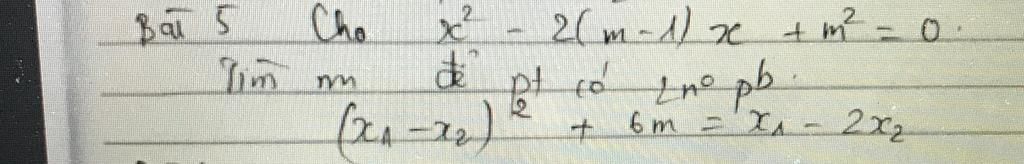 Bài 5 Cho x² - 2(m-1)x + m² = 0.
Tìm m để pt có 2 no pb.
(x₁ - x₂)² + 6m = x₁ - 2x₂